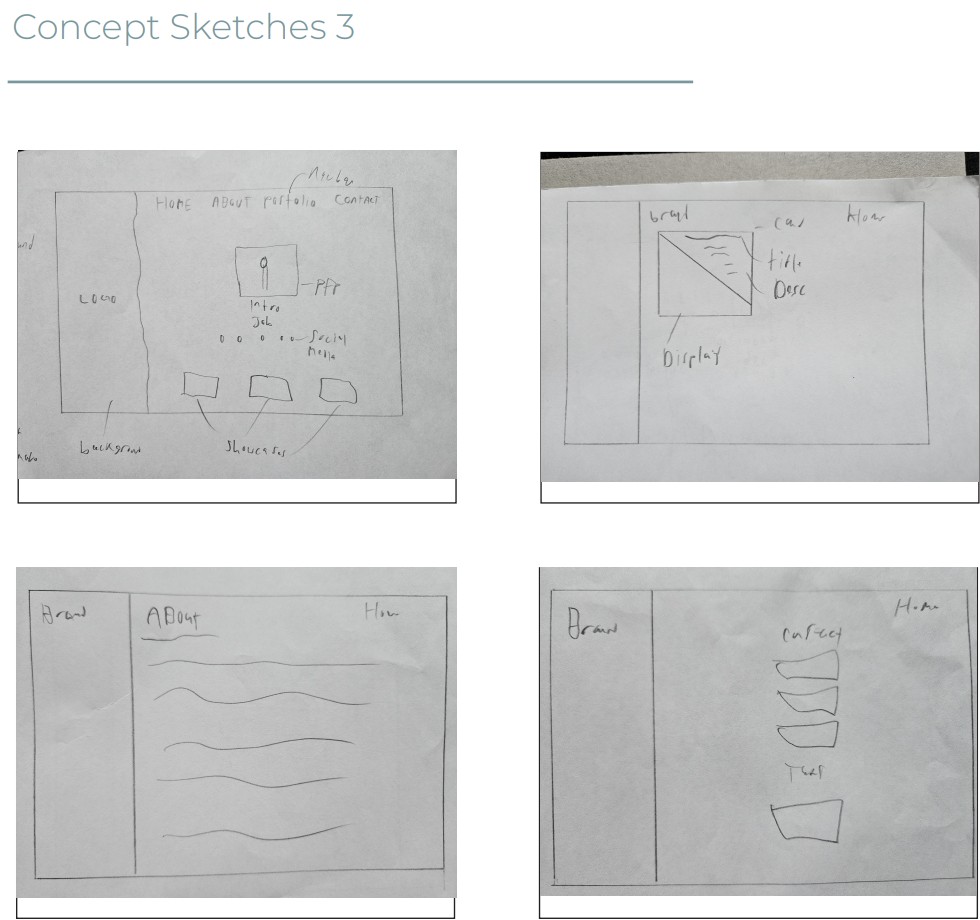 Concept Sketches 3
Navbar
HOME ABOUT Portfolio CONTACT
LOGO
PFP
Intro
Job
Social
Media
background
Showcases
brand
Card
Home
title
Desc
Display
Brand
ABout
Home
Brand
Home
Contact